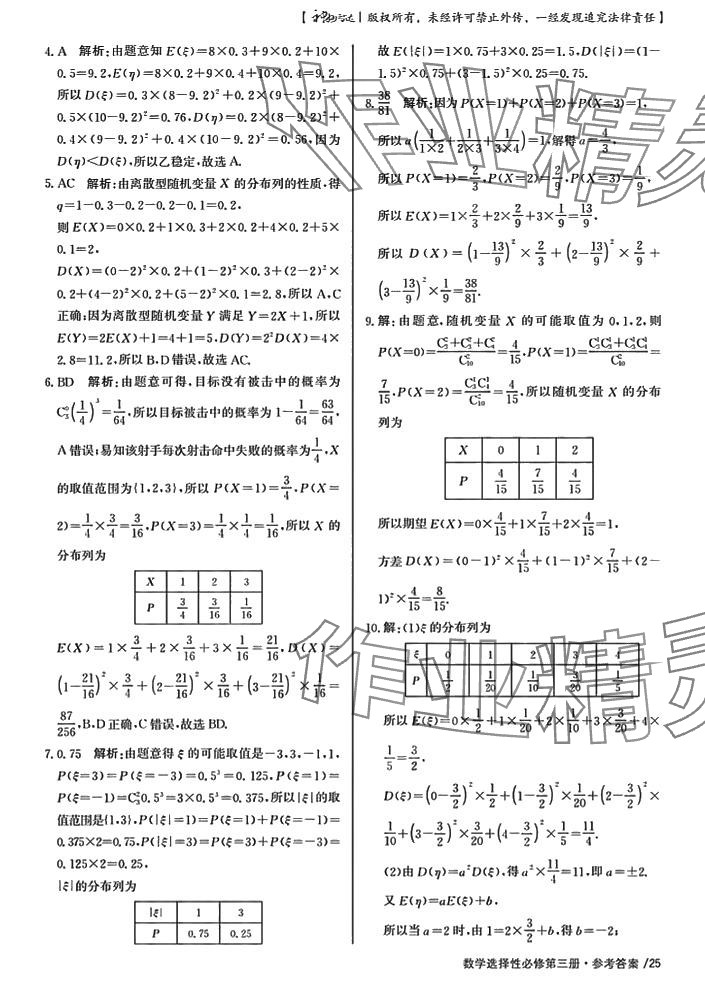 版权所有，未经许可禁止外传，一经发现追究法律责任】
4. A　解析:由题意知 E(ξ)=8×0.3+9×0.2+10×
0.5=9.2,E(η)=8×0.2+9×0.4+10×0.4=9.2,
所以 D(ξ)=0.3×(8-9.2)²+0.2×(9-9.2)²+
0.5×(10-9.2)²=0.76,D(η)=0.2×(8-9.2)²+
0.4×(9-9.2)²+0.4×(10-9.2)²=0.56,因为
D(η)<D(ξ),所以乙稳定,故选 A.
5. AC　解析:由离散型随机变量 X 的分布列的性质,得
q=1-0.3-0.2-0.2-0.1=0.2,
则 E(X)=0×0.2+1×0.3+2×0.2+4×0.2+5×
0.1=2,
D(X)=(0-2)²×0.2+(1-2)²×0.3+(2-2)²×
0.2+(4-2)²×0.2+(5-2)²×0.1=2.8,所以 A,C
正确;因为离散型随机变量 Y 满足 Y=2X+1,所以
E(Y)=2E(X)+1=4+1=5,D(Y)=2²D(X)=4×
2.8=11.2,所以 B,D 错误,故选 AC.
6. BD　解析:由题意可得,目标没有被击中的概率为
C₃⁰(1/4)³=1/64,所以目标被击中的概率为 1-1/64=63/64,
A 错误;易知该射手每次射击命中失败的概率为1/4,X
的取值范围为{1,2,3},所以 P(X=1)=3/4,P(X=
2)=1/4×3/4=3/16,P(X=3)=1/4×1/4=1/16,所以 X 的
分布列为
X 1 2 3
P 3/4 3/16 1/16
E(X)=1×3/4+2×3/16+3×1/16=21/16,D(X)=
(1-21/16)²×3/4+(2-21/16)²×3/16+(3-21/16)²×1/16=
87/256,B,D 正确,C 错误,故选 BD.
7. 0.75　解析:由题意得 ξ 的可能取值是-3,3,-1,1,
P(ξ=3)=P(ξ=-3)=0.5³=0.125,P(ξ=1)=
P(ξ=-1)=C₃²0.5³=3×0.5³=0.375,所以|ξ|的取
值范围是{1,3},P(|ξ|=1)=P(ξ=1)+P(ξ=-1)=
0.375×2=0.75,P(|ξ|=3)=P(ξ=3)+P(ξ=-3)=
0.125×2=0.25,
|ξ|的分布列为
|ξ| 1 3
P 0.75 0.25
故 E(|ξ|)=1×0.75+3×0.25=1.5,D(|ξ|)=(1-
1.5)²×0.75+(3-1.5)²×0.25=0.75.
8. 38/81　解析:因为 P(X=1)+P(X=2)+P(X=3)=1,
所以 a(1/1×2+1/2×3+1/3×4)=1,解得 a=4/3,
所以 P(X=1)=2/3,P(X=2)=2/9,P(X=3)=1/9,
所以 E(X)=1×2/3+2×2/9+3×1/9=13/9.
所以 D(X)=(1-13/9)²×2/3+(2-13/9)²×2/9+
(3-13/9)²×1/9=38/81.
9. 解:由题意,随机变量 X 的可能取值为 0,1,2,则
P(X=0)= =4/15,P(X=1)= =
7/15,P(X=2)= =4/15,所以随机变量 X 的分布
列为
X 0 1 2
P 4/15 7/15 4/15
所以期望 E(X)=0×4/15+1×7/15+2×4/15=1,
方差 D(X)=(0-1)²×4/15+(1-1)²×7/15+(2-
1)²×4/15=8/15.
10. 解:(1)ξ 的分布列为
ξ 0 1 2 3 4
P 1/2 1/20 1/10 3/20 1/5
所以 E(ξ)=0×1/2+1×1/20+2×1/10+3×3/20+4×
1/5=3/2.
D(ξ)=(0-3/2)²×1/2+(1-3/2)²×1/20+(2-3/2)²×
1/10+(3-3/2)²×3/20+(4-3/2)²×1/5=11/4.
(2)由 D(η)=a²D(ξ),得 a²×11/4=11,即 a=±2.
又 E(η)=aE(ξ)+b,
所以当 a=2 时,由 1=2×3/2+b,得 b=-2;
数学选择性必修第三册·参考答案/25
作业精灵
作业精灵